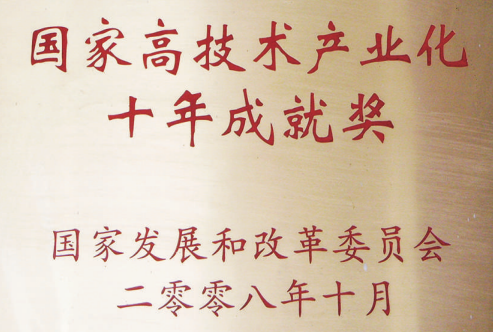 国家高技术产业化
十年成就奖
国家发展和改革委员会
二零零八年十月